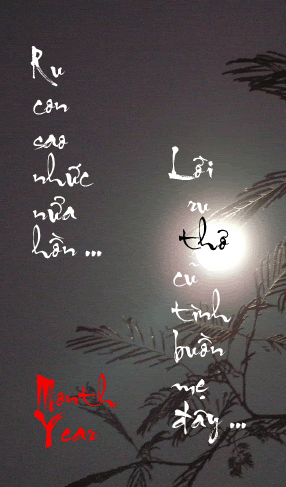 Ru
con
sao
nhức
nửa
hồn ...
Lời
ru
thơ
cũ
tình
buồn
mẹ
đây ...
Month
Year